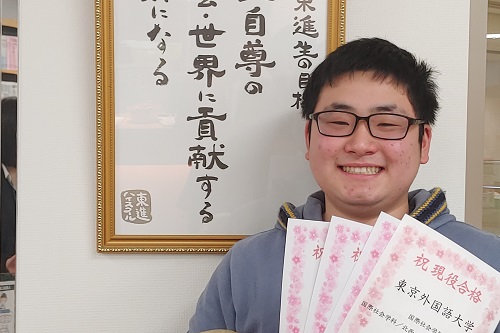 東進生の目標
自尊の
会・世界に貢献する
になる
東進
ハイスクール
祝
祝
祝
祝 現役合格
東京外国語大学
国際社会学
国際社会学科／北西